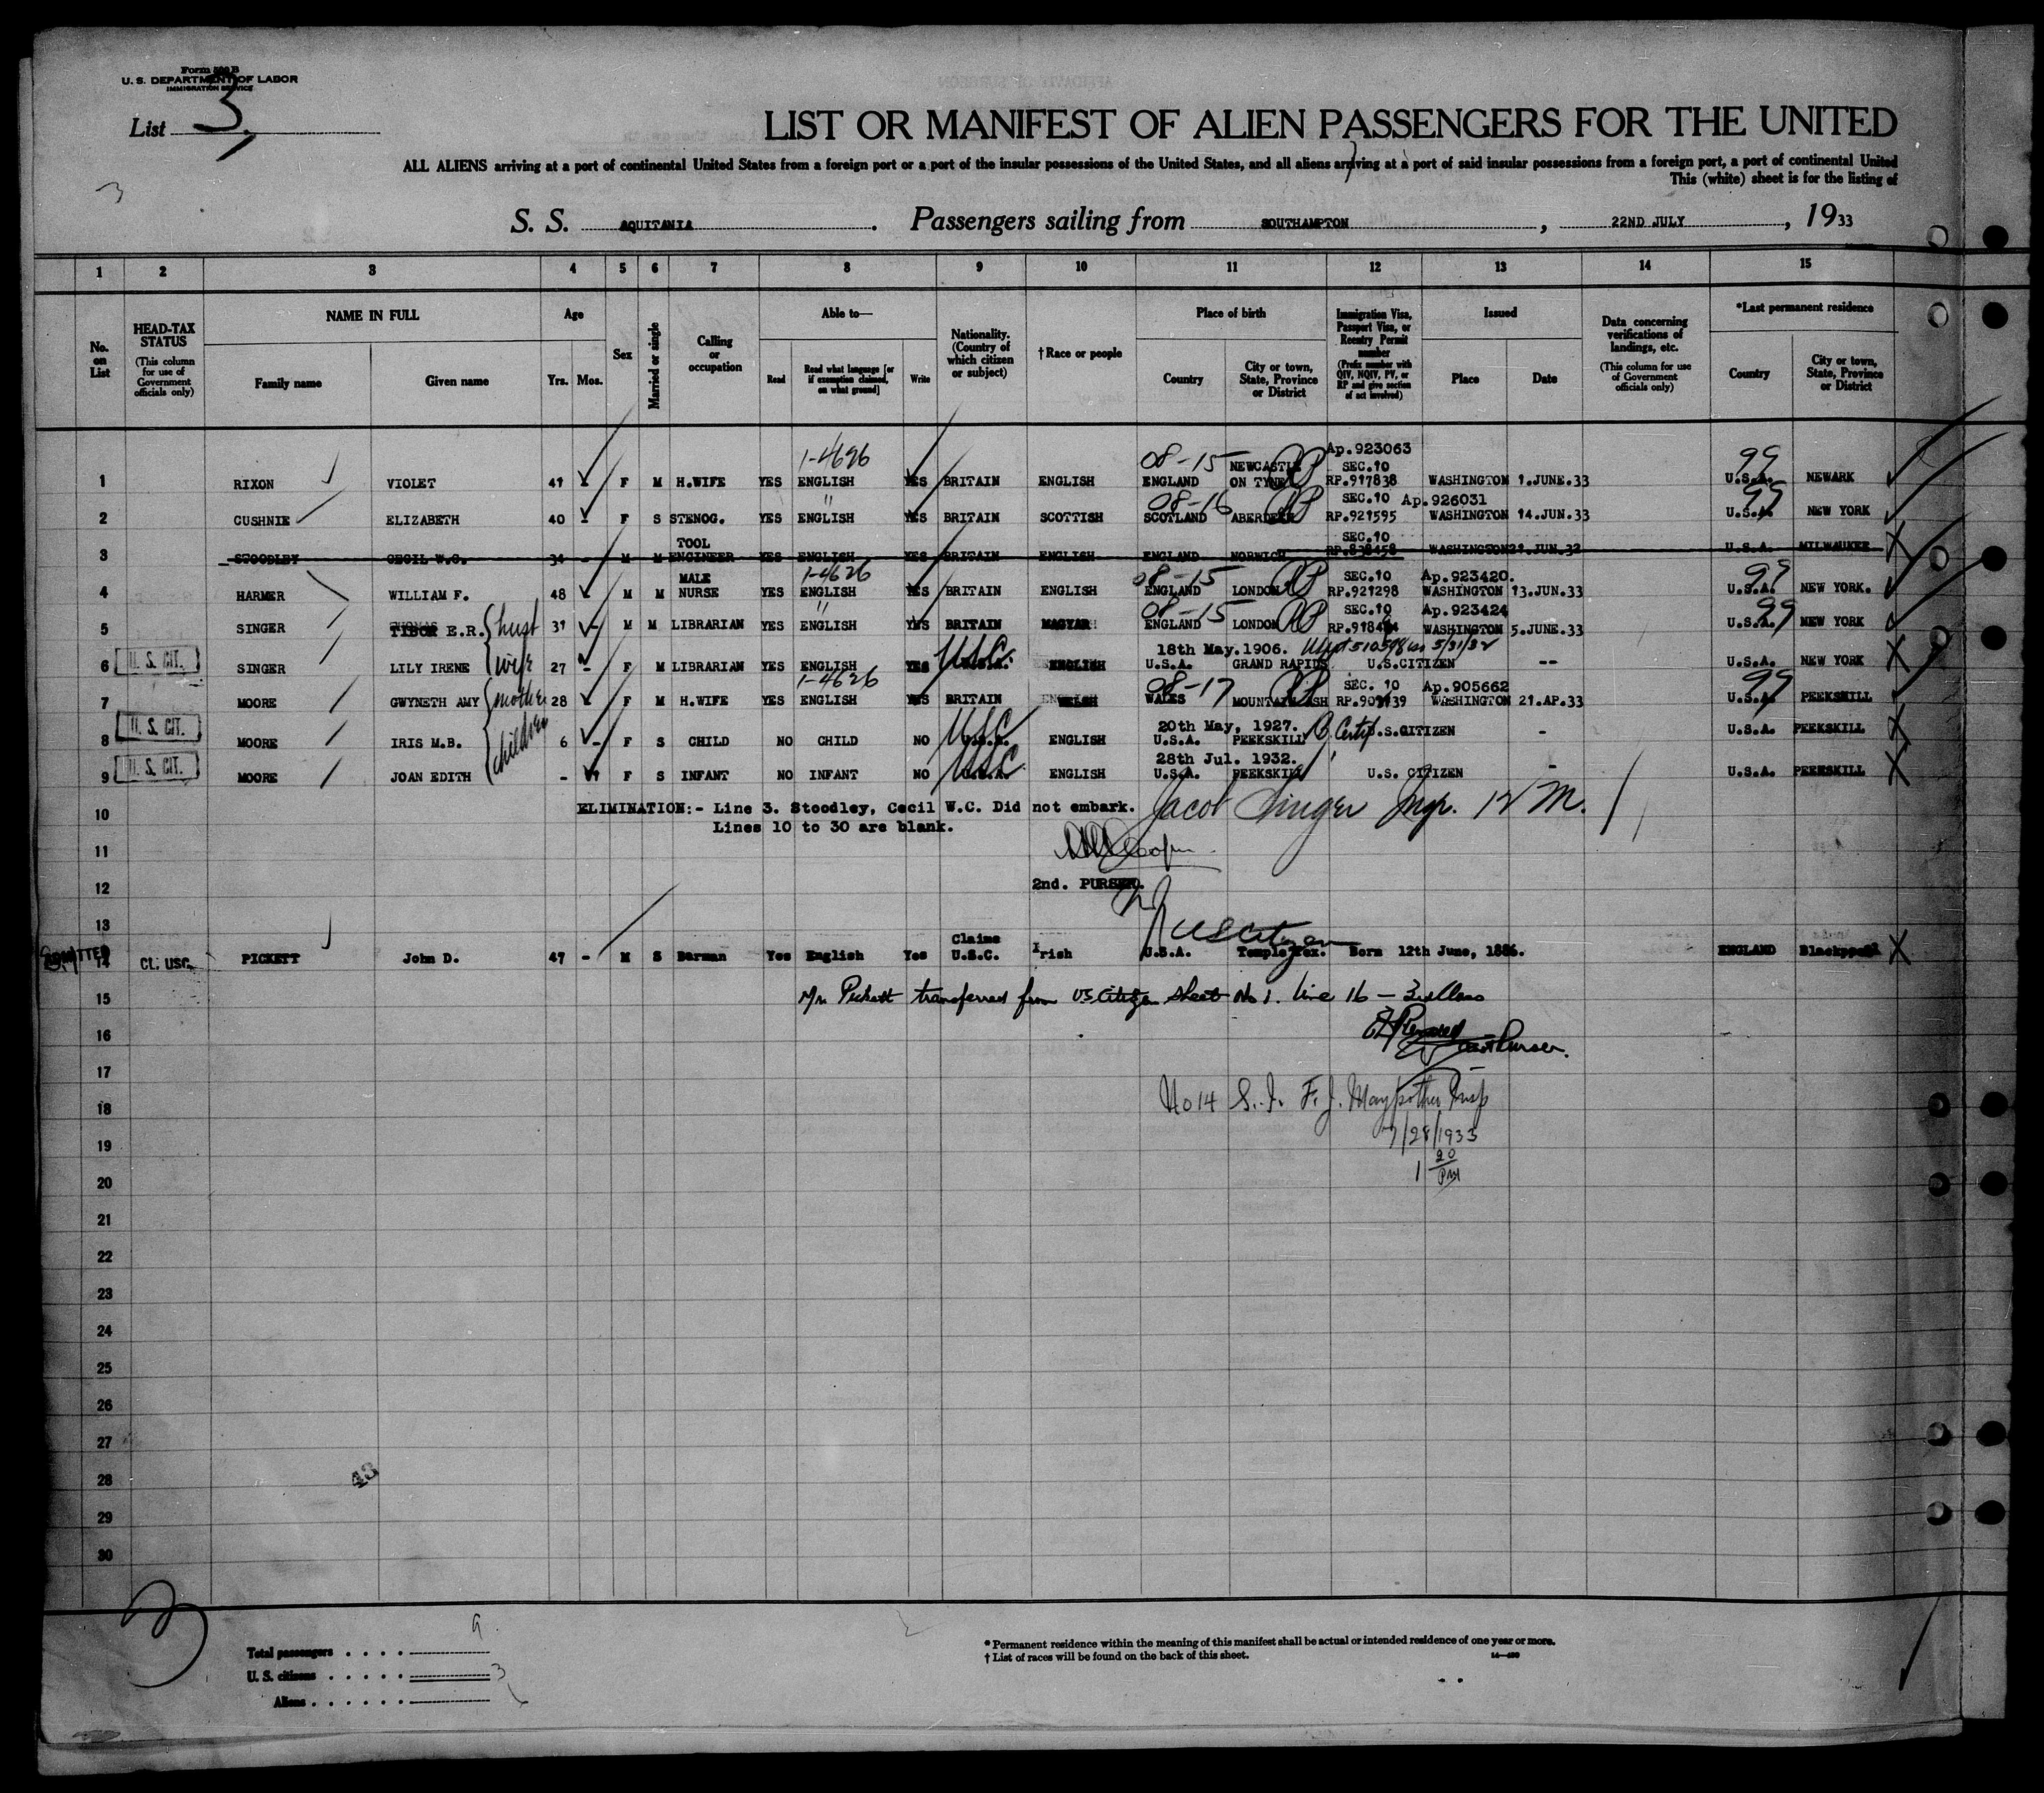 Form 500 B
U. S. DEPARTMENT OF LABOR
IMMIGRATION SERVICE
List 3
LIST OR MANIFEST OF ALIEN PASSENGERS FOR THE UNITED
ALL ALIENS arriving at a port of continental United States from a foreign port or a port of the insular possessions of the United States, and all aliens arriving at a port of said insular possessions from a foreign port, a port of continental United
This (white) sheet is for the listing of
3
S. S. AQUITANIA. Passengers sailing from SOUTHAMPTON, 22ND JULY, 1933
1 2 3 4 5 6 7 8 9 10 11 12 13 14 15
No. on List
HEAD-TAX STATUS (This column for use of Government officials only)
NAME IN FULL Family name Given name
Age Yrs. Mos.
Sex
Married or single
Calling or occupation
Able to— Read Read what language [or if exemption claimed, on what ground] Write
Nationality. (Country of which citizen or subject)
†Race or people
Place of birth Country City or town, State, Province or District
Immigration Visa, Passport Visa, or Reentry Permit number (Prefix number with QIV, NQIV, PV, or RP and give section of act involved)
Issued Place Date
Data concerning verifications of landings, etc. (This column for use of Government officials only)
*Last permanent residence Country City or town, State, Province or District
1-4626 08-15 NEWCASTLE Ap.923063 SEC.10 99
1 RIXON VIOLET 41 - F M H.WIFE YES ENGLISH YES BRITAIN ENGLISH ENGLAND ON TYNE RP.917838 WASHINGTON 1.JUNE.33 U.S.A. NEWARK
" 08-16 SEC.10 Ap.926031 99
2 CUSHNIE ELIZABETH 40 - F S STENOG. YES ENGLISH YES BRITAIN SCOTTISH SCOTLAND ABERDEEN RP.921595 WASHINGTON 14.JUN.33 U.S.A. NEW YORK
TOOL SEC.10
3 STOODLEY CECIL W.C. 34 - M M ENGINEER YES ENGLISH YES BRITAIN ENGLISH ENGLAND NORWICH RP.838458 WASHINGTON 21.JUN.32 U.S.A. MILWAUKEE
MALE 1-4626 08-15 SEC.10 Ap.923420. 99
4 HARMER WILLIAM F. 48 - M M NURSE YES ENGLISH YES BRITAIN ENGLISH ENGLAND LONDON RP.921298 WASHINGTON 13.JUN.33 U.S.A. NEW YORK.
" 08-15 SEC.10 Ap.923424 99
5 SINGER TIBOR E.R. husb 31 - M M LIBRARIAN YES ENGLISH YES BRITAIN MAGYAR ENGLAND LONDON WASHINGTON 5.JUNE.33 U.S.A. NEW YORK
18th May.1906. 5/31/32
U. S. CIT. 6 SINGER LILY IRENE wife 27 - F M LIBRARIAN YES ENGLISH YES USC ENGLISH U.S.A. GRAND RAPIDS U.S.CITIZEN -- U.S.A. NEW YORK
1-4626 08-17 SEC. 10 Ap.905662 99
7 MOORE GWYNETH AMY mother 28 - F M H.WIFE YES ENGLISH YES BRITAIN WELSH WALES MOUNTAIN ASH WASHINGTON 21.AP.33 U.S.A. PEEKSKILL
20th May, 1927.
U. S. CIT. 8 MOORE IRIS M.B. children 6 - F S CHILD NO CHILD NO USC ENGLISH U.S.A. PEEKSKILL B. Certif U.S.CITIZEN - U.S.A. PEEKSKILL
28th Jul. 1932.
U. S. CIT. 9 MOORE JOAN EDITH - 11 F S INFANT NO INFANT NO USC ENGLISH U.S.A. PEEKSKILL U.S. CITIZEN - U.S.A. PEEKSKILL
10 ELIMINATION:- Line 3. Stoodley, Cecil W.C. Did not embark.
Lines 10 to 30 are blank.
Jacob Singer Insp.
11
12 2nd. PURSER.
13
US Citizen
ADMITTED 14 CL: USC. PICKETT John D. 47 - M S Barman Yes English Yes Claims U.S.C. Irish U.S.A. Temple Tex. Born 12th June, 1886. ENGLAND Blackpool
15 Mr Pickett transferred from US Citizen Sheet No 1. line 16 - 3rd Class
16 Purser.
17
18 No 14 S.I. F. J. Maypother Insp
19 7/28/1933
20 1 20 PM
21
22
23
24
25
26
27
28 43
29
30
3
Total passengers . . . . 9
U. S. citizens . . . . . 3
Aliens . . . . . .
* Permanent residence within the meaning of this manifest shall be actual or intended residence of one year or more.
† List of races will be found on the back of this sheet.
14—480